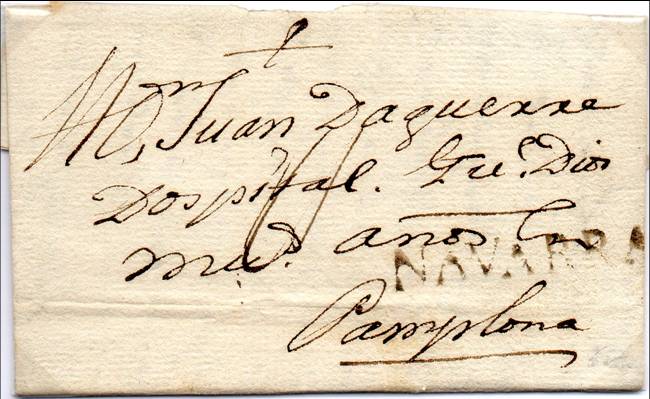 A Dn Juan Daguerre
Dospital. Gue. Dios
ms. años En
NAVARRA
Pamplona